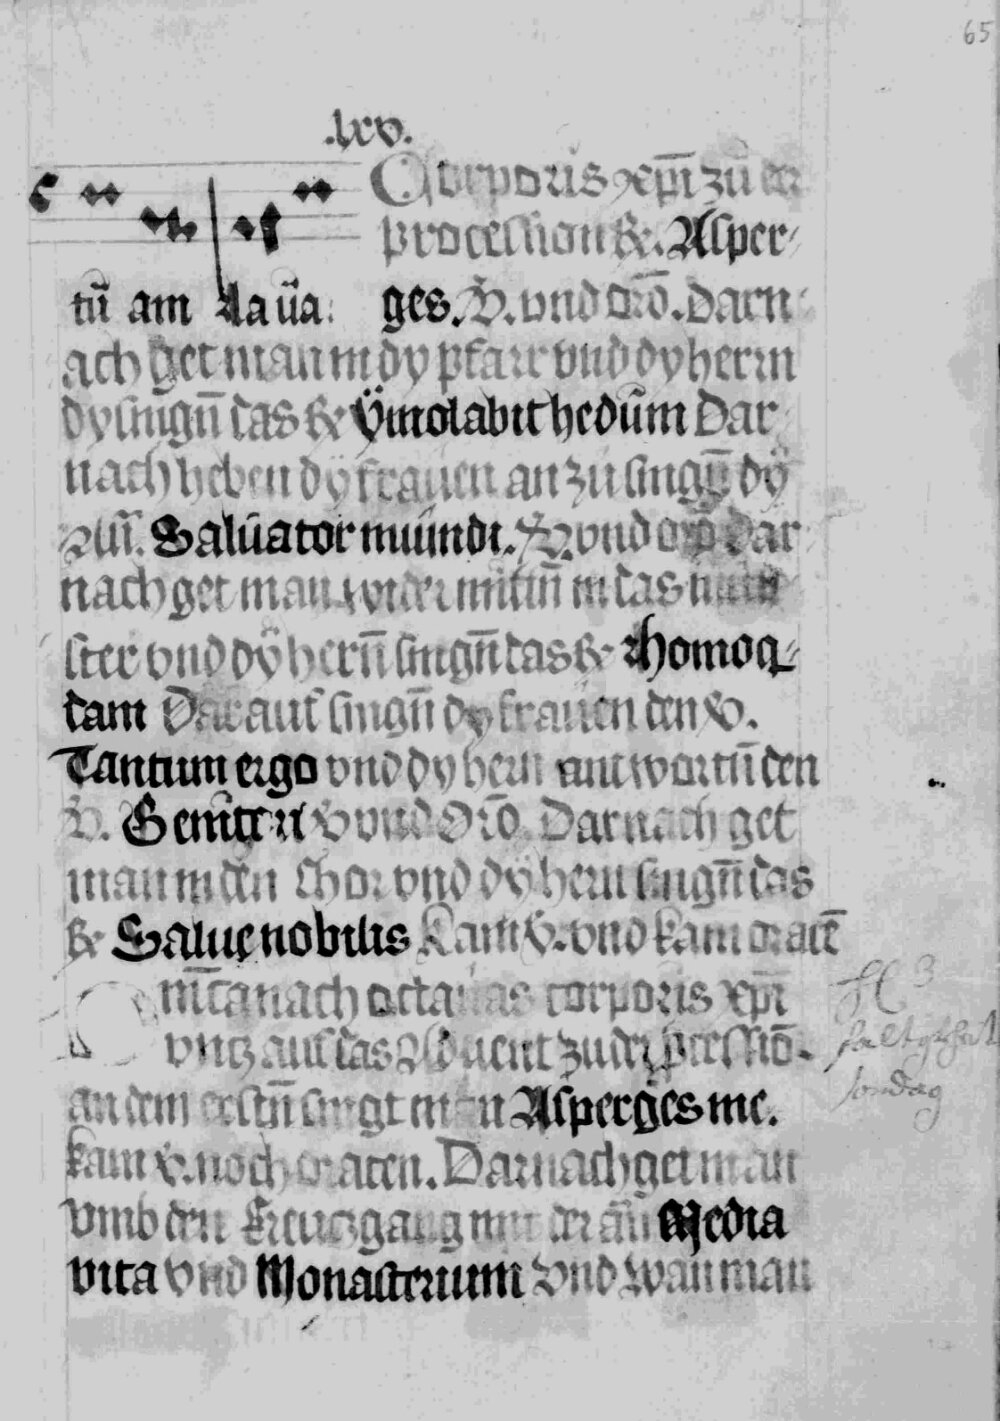 65
.lxv.
Corporis xp̄i zu der
procession ℟. Asper-
tū am Aaūa. ges. V. vnd orō. Darn
ach get man in dy pfarr vnd dy herrn
dy singn̄ das ℟ Ÿmolabit hedūm Dar
nach heben dÿ frauen an zū singn̄ dÿ
Salūator mūndi. V. vnd orō Dar
nach get man wider mitin̄ in das mün
ster vnd dÿ herrn̄ singn̄ das ℟ homoq-
dam Darauf singn̄ dy frauen den V.
Tantum ergo vnd dy hern antwortn̄ den
V. Genitori V vnd Orō. Darnach get
man in den Chor vnd dÿ hern singn̄ das
℟ Salue nobilis kain V. vnd kain oracē
nach octauas corporis xp̄i
vntz auf das Aduent zu der p̄cessiō.
an dem erstn̄ singt man Asperges me.
kain V. noch oracen. Darnach get man
vmb den Kreutzgang mit der an̄ Media
vita vnd Monasterium vnd wan man
sondag